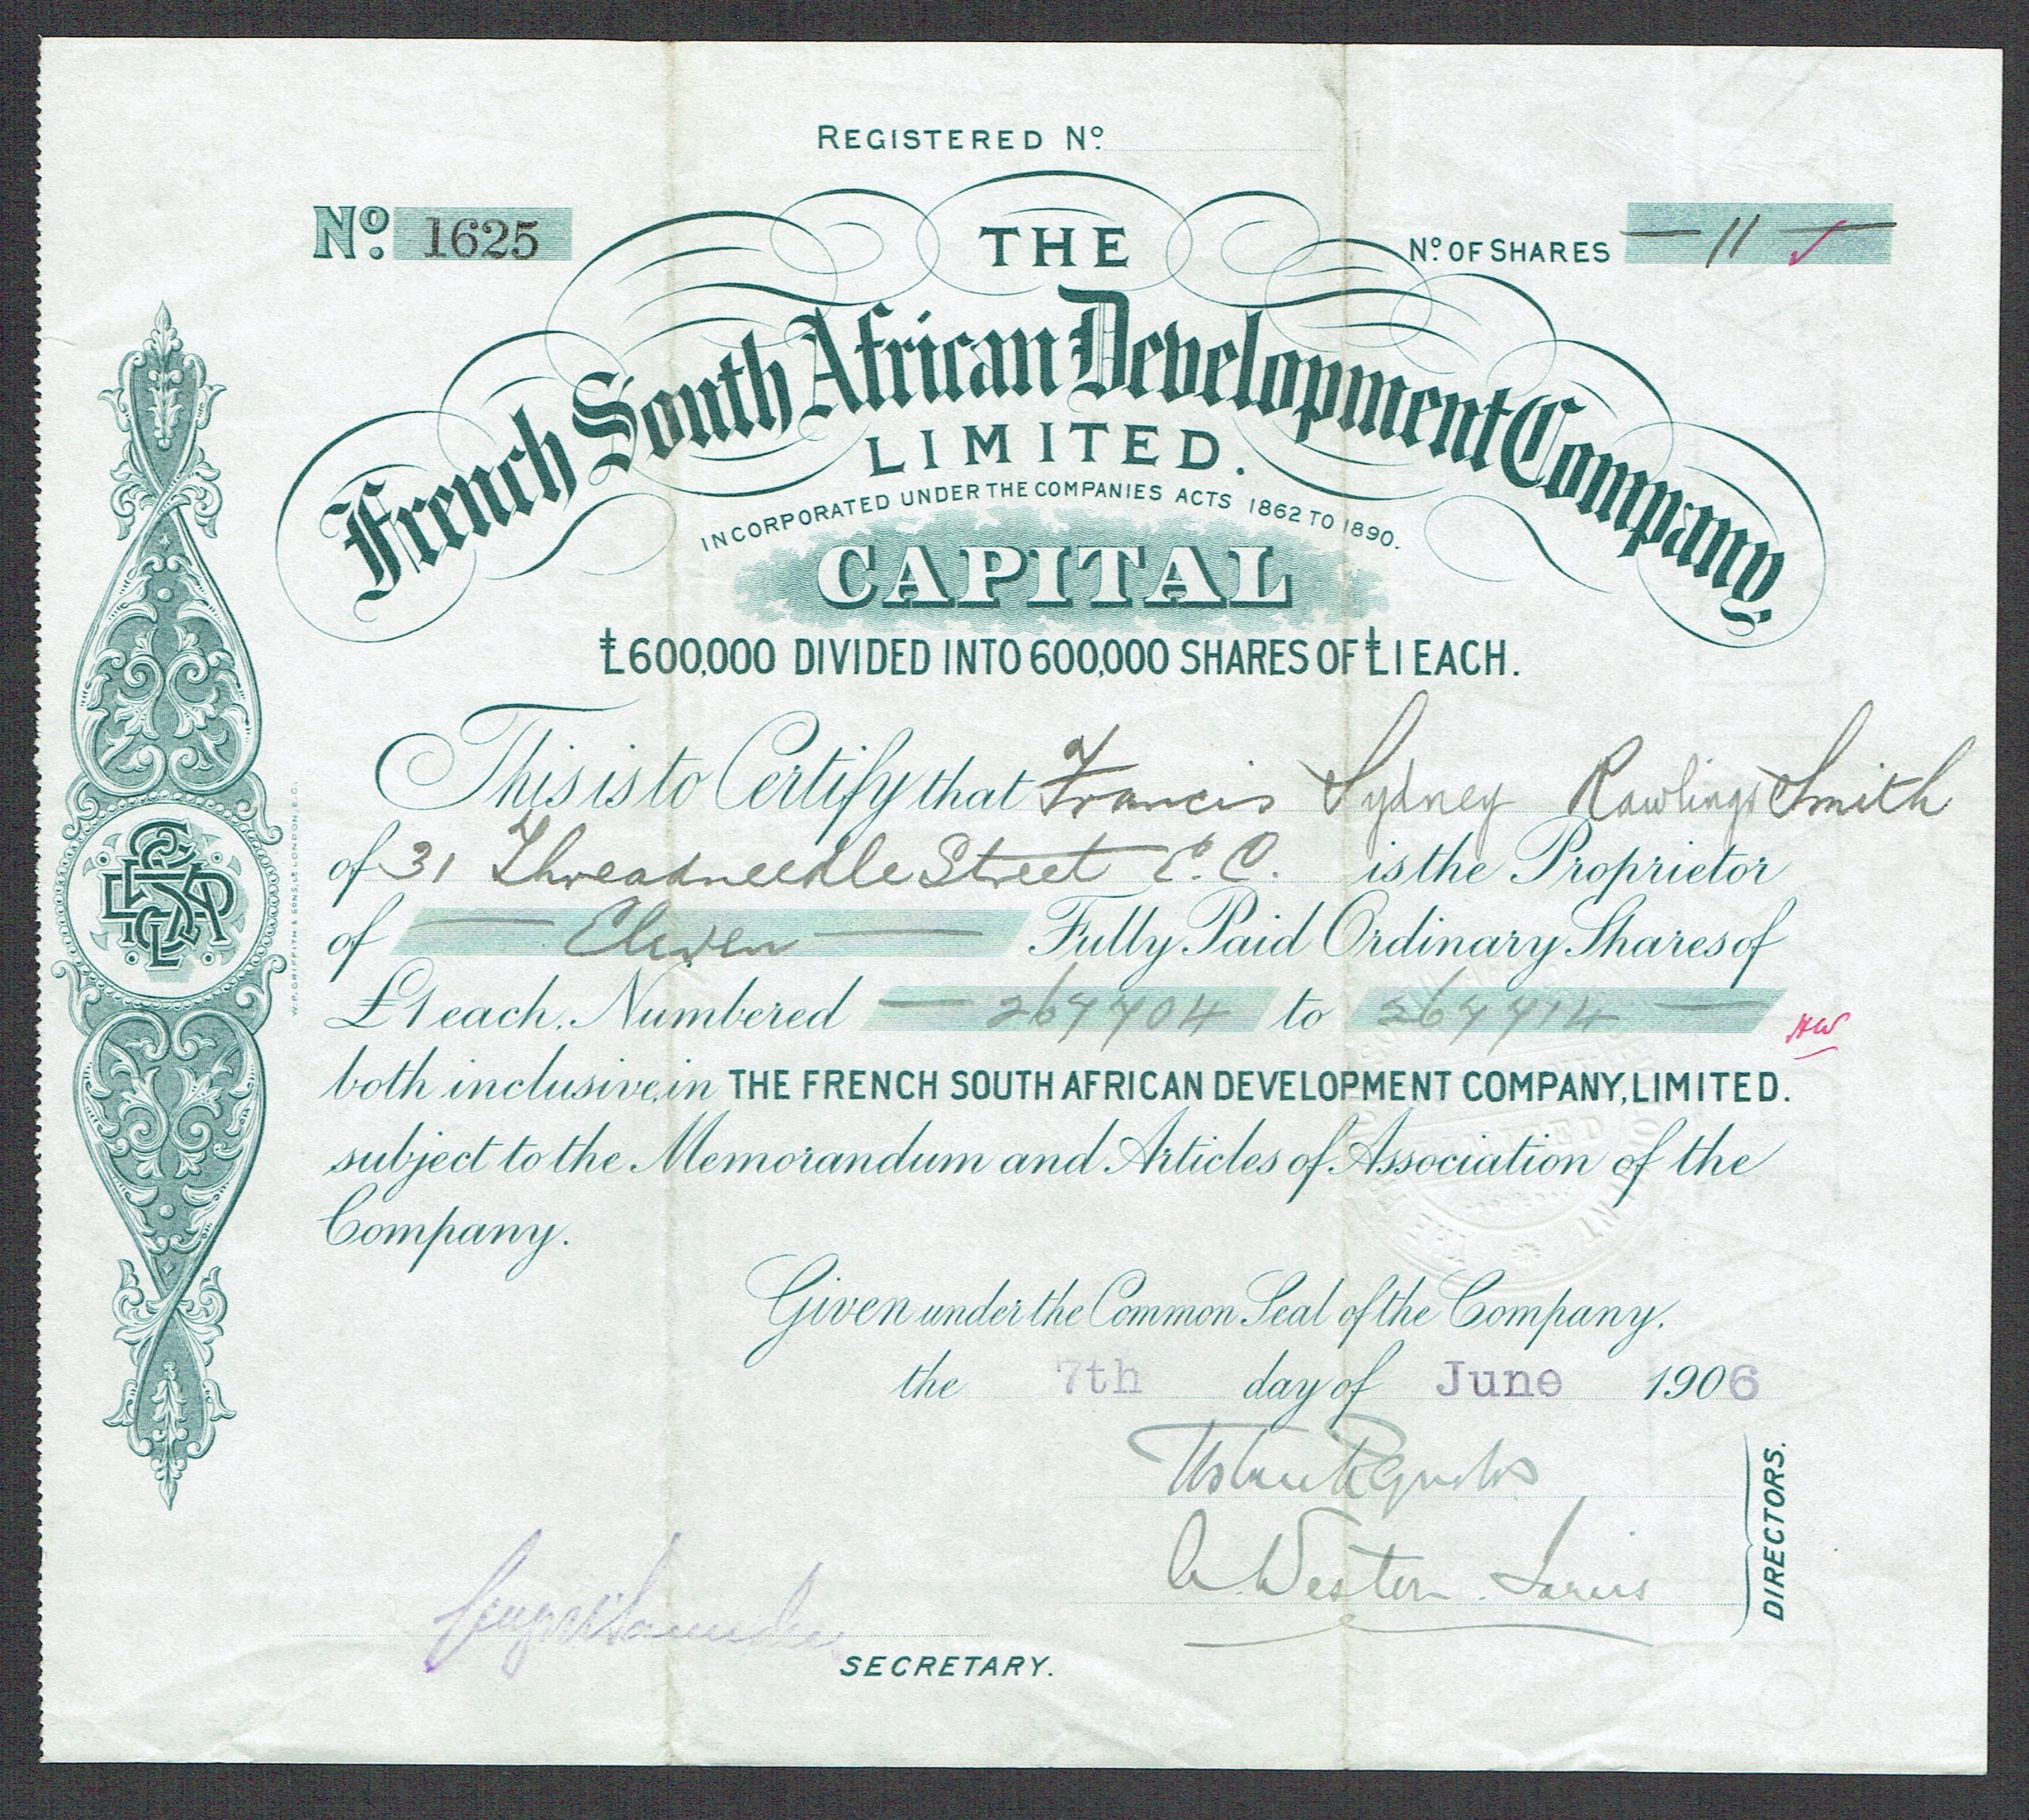 REGISTERED Nº
Nº 1625
Nº OF SHARES — 11 —
THE
French South African Development Company
LIMITED.
INCORPORATED UNDER THE COMPANIES ACTS 1862 TO 1890.
CAPITAL
£600,000 DIVIDED INTO 600,000 SHARES OF £1 EACH.
This is to Certify that Francis Sydney Rawlings Smith
of 31 Threadneedle Street E.C. is the Proprietor
of — Eleven — Fully Paid Ordinary Shares of
£1 each, Numbered — 267704 to 267714 —
HW
both inclusive, in THE FRENCH SOUTH AFRICAN DEVELOPMENT COMPANY, LIMITED.
subject to the Memorandum and Articles of Association of the
Company.
Given under the Common Seal of the Company.
the 7th day of June 1906
A. Weston Jarvis
DIRECTORS.
SECRETARY.
W.P. GRIFFITH & SONS, LD LONDON, E.C.